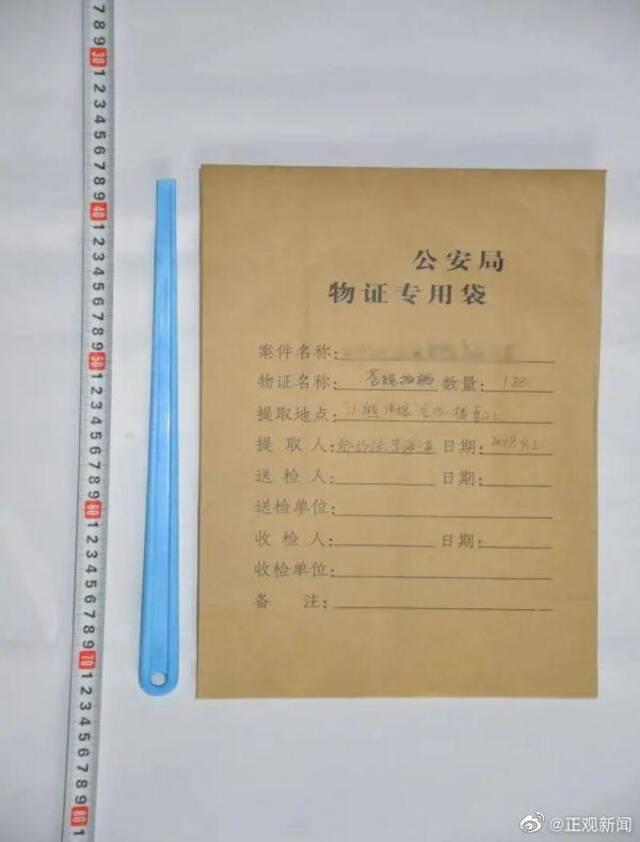 7 8 9 30 1 2 3 4 5 6 7 8 9 40 1 2 3 4 5 6 7 8 9 50 1 2 3 4 5 6 7 8 9 60 1 2 3 4 5 6 7 8 9 70 1 2 3 4 5 6 7 8 9 80 1
公安局
物证专用袋
案件名称:
物证名称: 苍蝇拍柄 数量: 1把
提取地点: 一楼桌上
提取人: 日期: 2019.4.2
送检人: 日期:
送检单位:
收检人: 日期:
收检单位:
备注:
@正观新闻